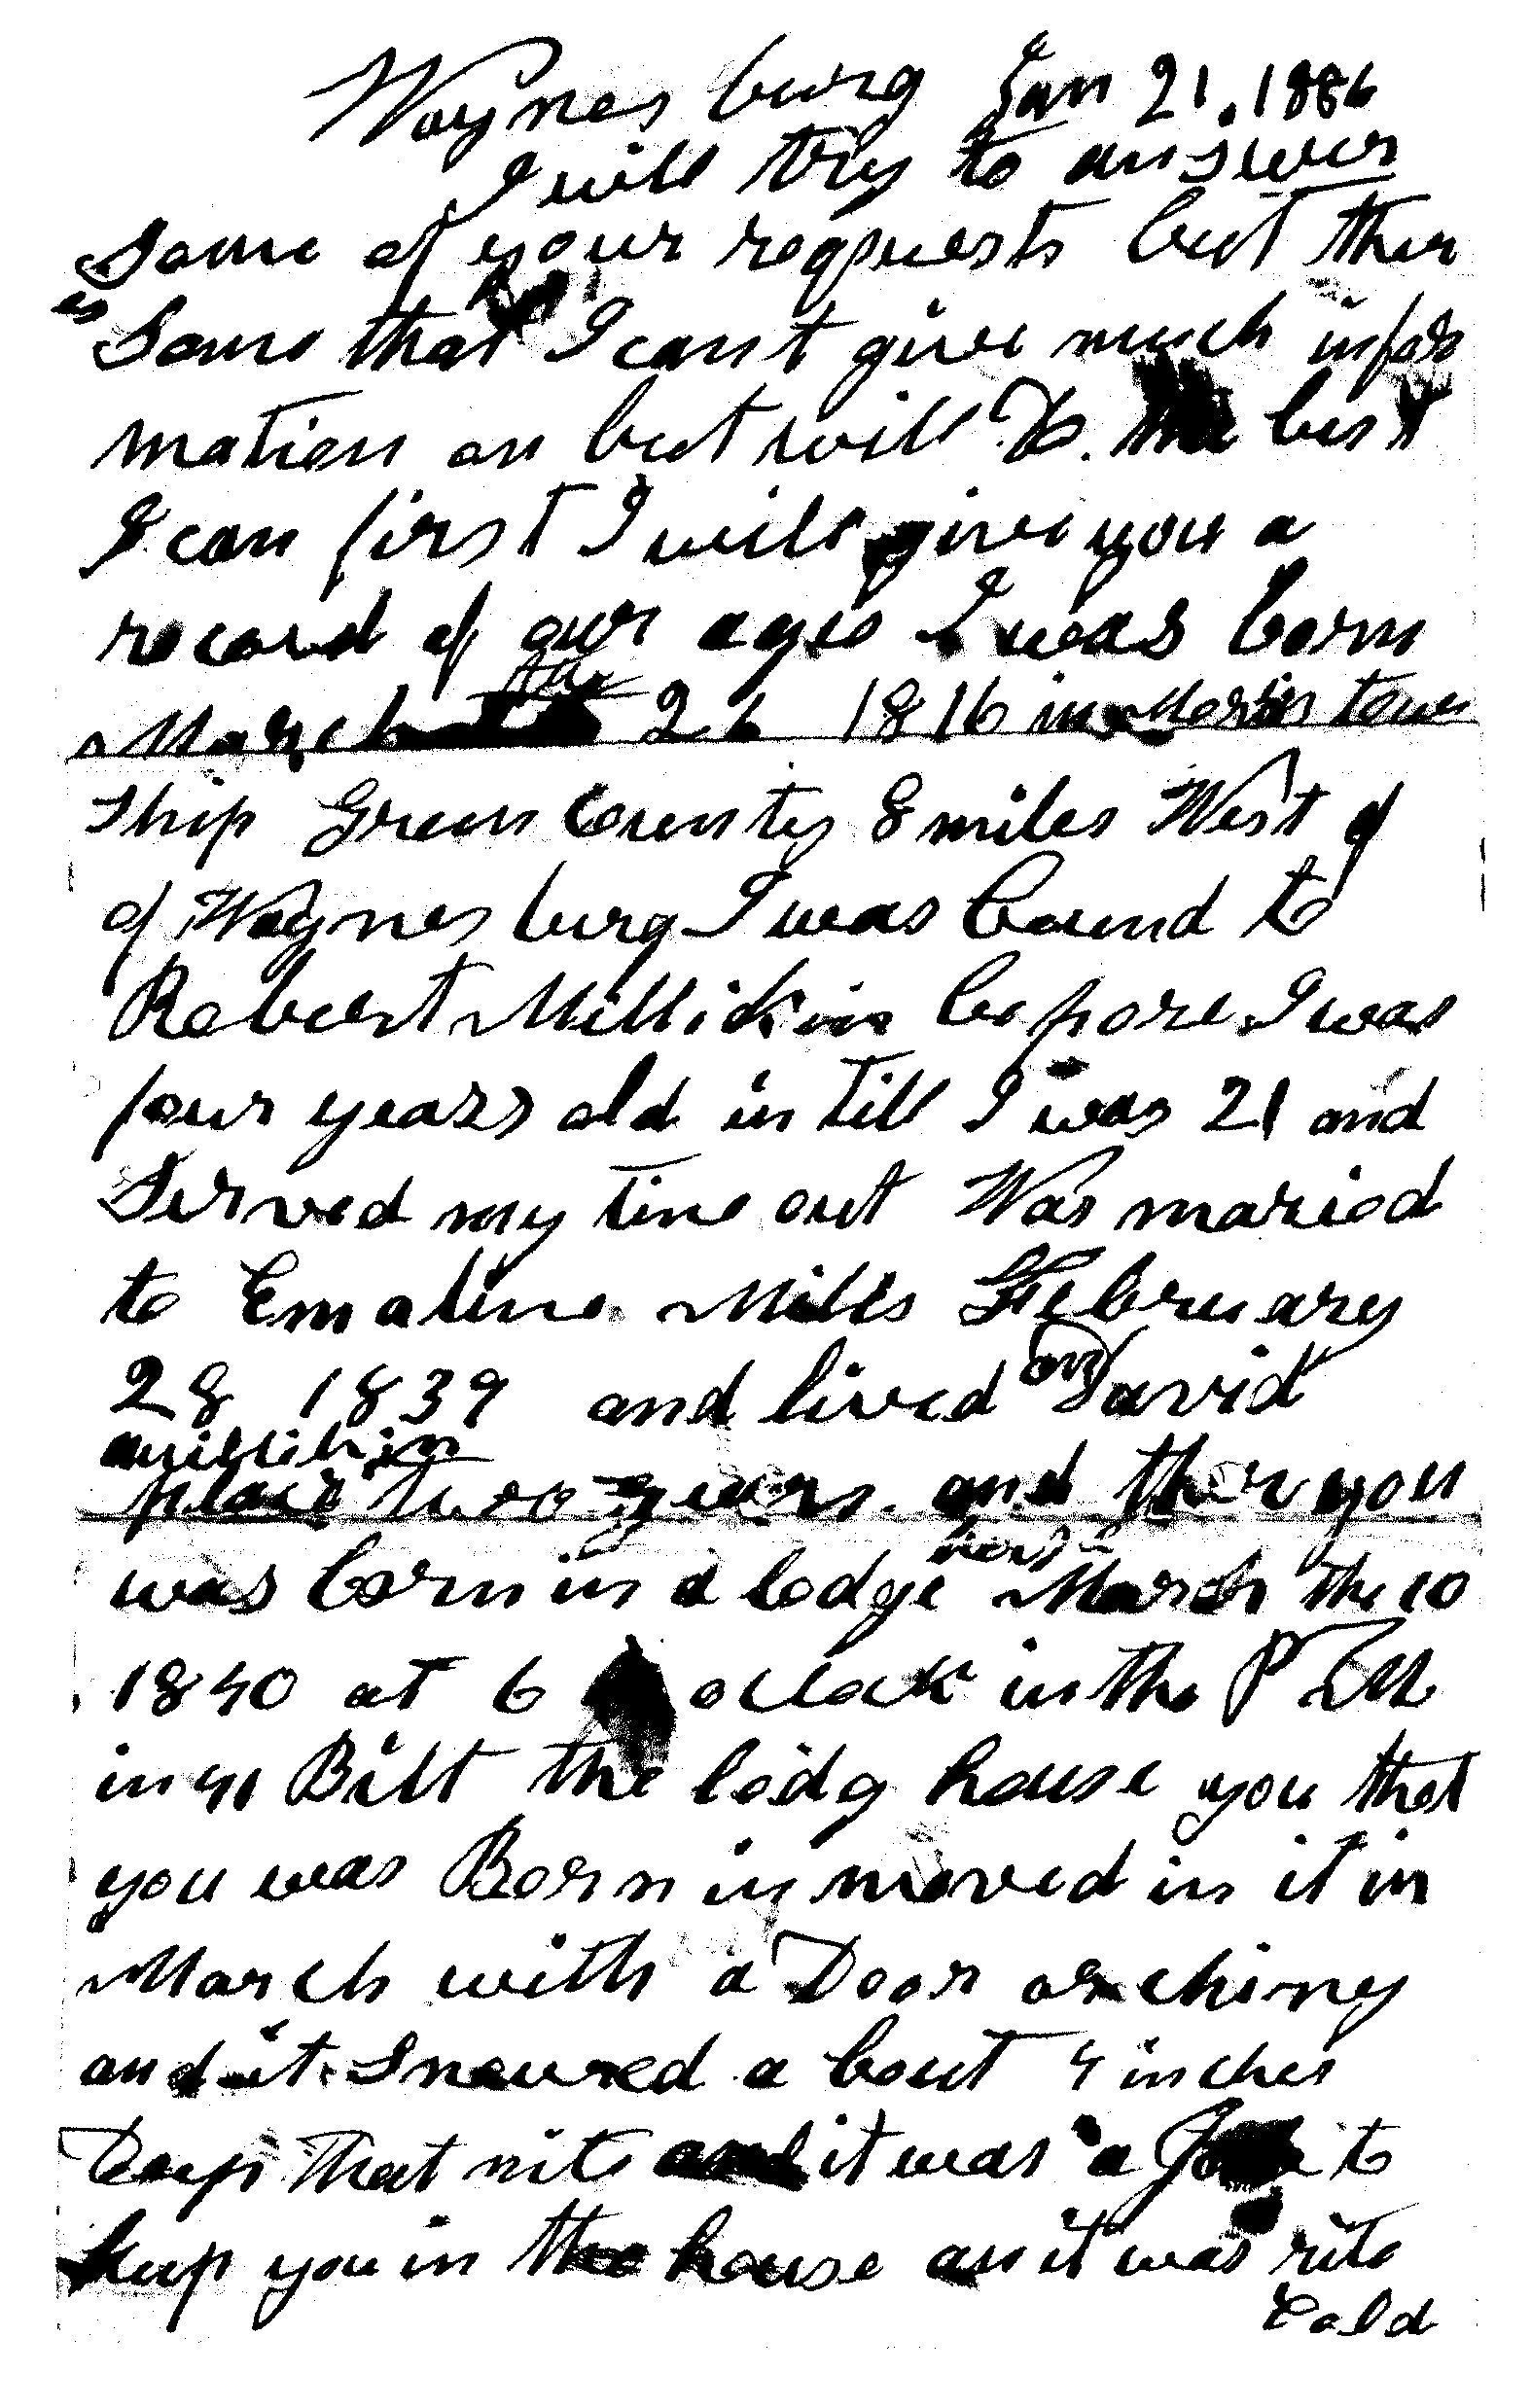 Waynesburg Jan 21. 1886
I will try to answer
Some of your requests but ther
is
Some that I cant give much infor
mation on but will Do. the best
I can first I will give you a
record of our ages I was born
March the 26 1816 in Morris town
Ship Green County 8 miles West of
of Waynesburg I was bound to
Robert Millikin before I was
four years old in till I was 21 and
Served my time out Was maried
to Emaline Mills February
28 1839 and lived on David
millikin
place two years. and ther you
house
was born in a lodge March the 10
1840 at 6 oclock in the P M
in 41 Bilt the lodg house you that
you was Born in moved in it in
March with a Door or chimy
and it Snowed a bout 4 inches
Deep that nite and it was a Job to
keep you in the house as it was rite
Cold